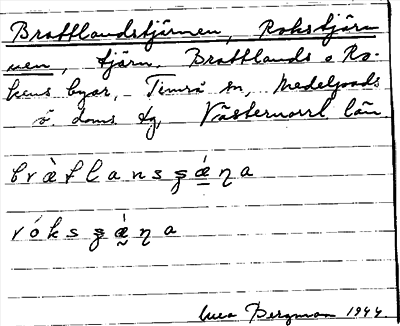 Brattlandstjärnen, Rokstjärn
nen, tjärn. Brattlands o Ro-
kens byar, Timrå sn, Medelpads
ö. doms. tg, Västernorrl län.
bràtlansʂǽŋa
róksʂǽŋa
Bergman 1944.